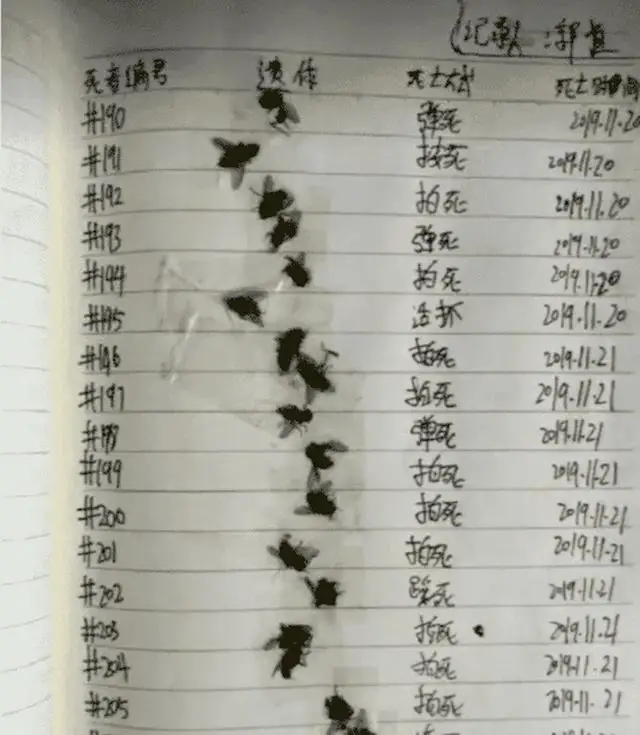 记录人：郭
死者编号 遗体 死亡方式 死亡时间
#190 弹死 2019.11.20
#191 拍死 2019.11.20
#192 拍死 2019.11.20
#193 弹死 2019.11.20
#194 拍死 2019.11.20
#195 活抓 2019.11.20
#196 拍死 2019.11.21
#197 拍死 2019.11.21
#198 弹死 2019.11.21
#199 拍死 2019.11.21
#200 拍死 2019.11.21
#201 拍死 2019.11.21
#202 踩死 2019.11.21
#203 拍死 2019.11.21
#204 拍死 2019.11.21
#205 拍死 2019.11.21